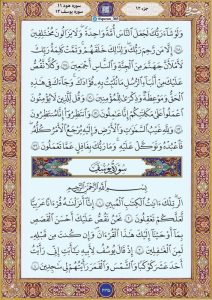 جزء ۱۲
سوره هود ۱۱
سوره یوسف ۱۲
وَلَوْ شَاءَ رَبُّكَ لَجَعَلَ النَّاسَ أُمَّةً وَاحِدَةً وَلَا يَزَالُونَ مُخْتَلِفِينَ
إِلَّا مَنْ رَحِمَ رَبُّكَ وَلِذَٰلِكَ خَلَقَهُمْ وَتَمَّتْ كَلِمَةُ رَبِّكَ
لَأَمْلَأَنَّ جَهَنَّمَ مِنَ الْجِنَّةِ وَالنَّاسِ أَجْمَعِينَ وَكُلًّا نَقُصُّ
عَلَيْكَ مِنْ أَنْبَاءِ الرُّسُلِ مَا نُثَبِّتُ بِهِ فُؤَادَكَ وَجَاءَكَ فِي هَٰذِهِ
الْحَقُّ وَمَوْعِظَةٌ وَذِكْرَىٰ لِلْمُؤْمِنِينَ وَقُلْ لِلَّذِينَ لَا يُؤْمِنُونَ
اعْمَلُوا عَلَىٰ مَكَانَتِكُمْ إِنَّا عَامِلُونَ وَانْتَظِرُوا إِنَّا مُنْتَظِرُونَ
وَلِلَّهِ غَيْبُ السَّمَاوَاتِ وَالْأَرْضِ وَإِلَيْهِ يُرْجَعُ الْأَمْرُ كُلُّهُ
فَاعْبُدْهُ وَتَوَكَّلْ عَلَيْهِ وَمَا رَبُّكَ بِغَافِلٍ عَمَّا تَعْمَلُونَ
سورة يوسف
بِسْمِ اللَّهِ الرَّحْمَٰنِ الرَّحِيمِ
الر تِلْكَ آيَاتُ الْكِتَابِ الْمُبِينِ إِنَّا أَنْزَلْنَاهُ قُرْآنًا عَرَبِيًّا
لَعَلَّكُمْ تَعْقِلُونَ نَحْنُ نَقُصُّ عَلَيْكَ أَحْسَنَ الْقَصَصِ
بِمَا أَوْحَيْنَا إِلَيْكَ هَٰذَا الْقُرْآنَ وَإِنْ كُنْتَ مِنْ قَبْلِهِ
لَمِنَ الْغَافِلِينَ إِذْ قَالَ يُوسُفُ لِأَبِيهِ يَا أَبَتِ إِنِّي رَأَيْتُ
أَحَدَ عَشَرَ كَوْكَبًا وَالشَّمْسَ وَالْقَمَرَ رَأَيْتُهُمْ لِي سَاجِدِينَ
۲۳۵